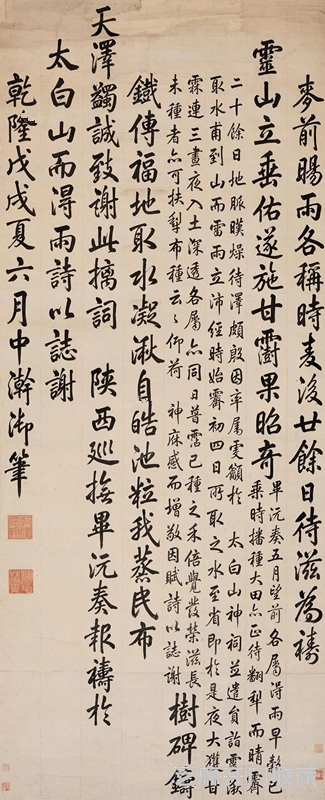 麥前賜雨各稱時麦後廿餘日待滋為禱
靈山立垂佑遂施甘霔果昭奇
畢沅奏五月望前各属得雨早穀已
乘時播種大田亦正待翻犁而晴霽
二十餘日地脈暵燥待澤頗殷因率属虔籲於 太白山神祠並遣員詣靈湫
取水甫到山而雷雨立沛經時始霽初四日所取之水至省即於是夜大獲甘
霖連三晝夜入土深透各属亦同日普霑已種之禾倍覺發榮滋長
未種者亦可扶犁布種云云仰荷 神庥感而增敬因賦詩以誌謝
樹碑鑄
鐵傳福地取水凝湫自皓池粒我蒸民布
天澤蠲誠致謝此摛詞 陝西巡撫畢沅奏報禱於
太白山而得雨詩以誌謝
乾隆戊戌夏六月中澣御筆